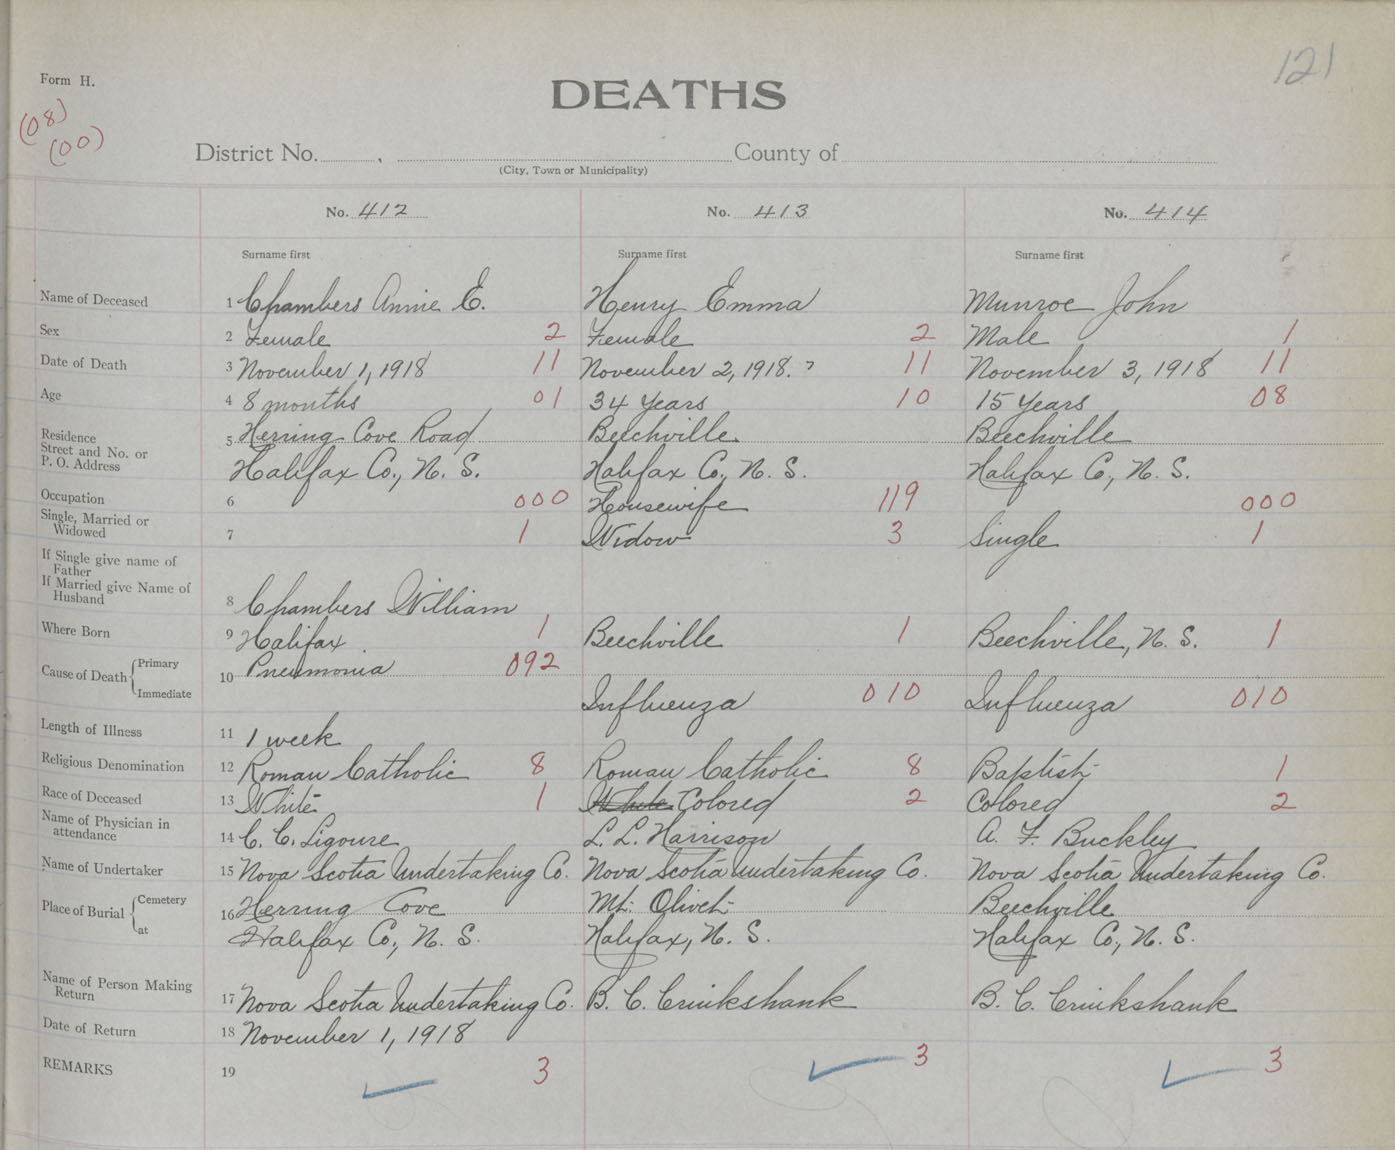 121
Form H.
DEATHS
(08)
(00)
District No. , County of
(City, Town or Municipality)
No. 412 No. 413 No. 414
Surname first Surname first Surname first
Name of Deceased 1 Chambers Annie E. Henry Emma Munroe John
Sex 2 Female 2 Female 2 Male 1
Date of Death 3 November 1, 1918 11 November 2, 1918. 11 November 3, 1918 11
Age 4 8 months 01 34 Years 10 15 Years 08
Residence 5 Herring Cove Road Beechville Beechville
Street and No. or
P. O. Address Halifax Co., N. S. Halifax Co., N. S. Halifax Co., N. S.
Occupation 6 000 Housewife 119 000
Single, Married or
Widowed 7 1 Widow 3 Single 1
If Single give name of
Father
If Married give Name of
Husband 8 Chambers William
Where Born 9 Halifax 1 Beechville 1 Beechville, N. S. 1
Cause of Death Primary 10 Pneumonia 092
Immediate Influenza 010 Influenza 010
Length of Illness 11 1 week
Religious Denomination 12 Roman Catholic 8 Roman Catholic 8 Baptist 1
Race of Deceased 13 White 1 White Colored 2 Colored 2
Name of Physician in
attendance 14 C. C. Ligoure L. L. Harrison A. F. Buckley
Name of Undertaker 15 Nova Scotia Undertaking Co. Nova Scotia Undertaking Co. Nova Scotia Undertaking Co.
Place of Burial Cemetery 16 Herring Cove Mt. Olivet Beechville
at Halifax Co., N. S. Halifax, N. S. Halifax Co., N. S.
Name of Person Making
Return 17 Nova Scotia Undertaking Co. B. C. Cruikshank B. C. Cruikshank
Date of Return 18 November 1, 1918
REMARKS 19 3 3 3